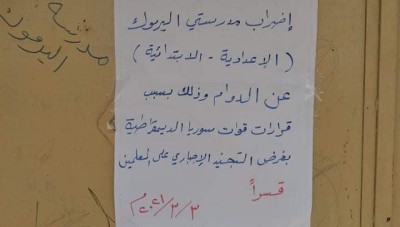 إضراب مدرستي اليرموك
( الإعدادية - الابتدائية )
عن الدوام وذلك بسبب
قرارات قوات سوريا الديمقراطية
بفرض التجنيد الإجباري على المعلمين
قسراً
٢٠٢١/٣/٣ م
مدرسة
اليرموك